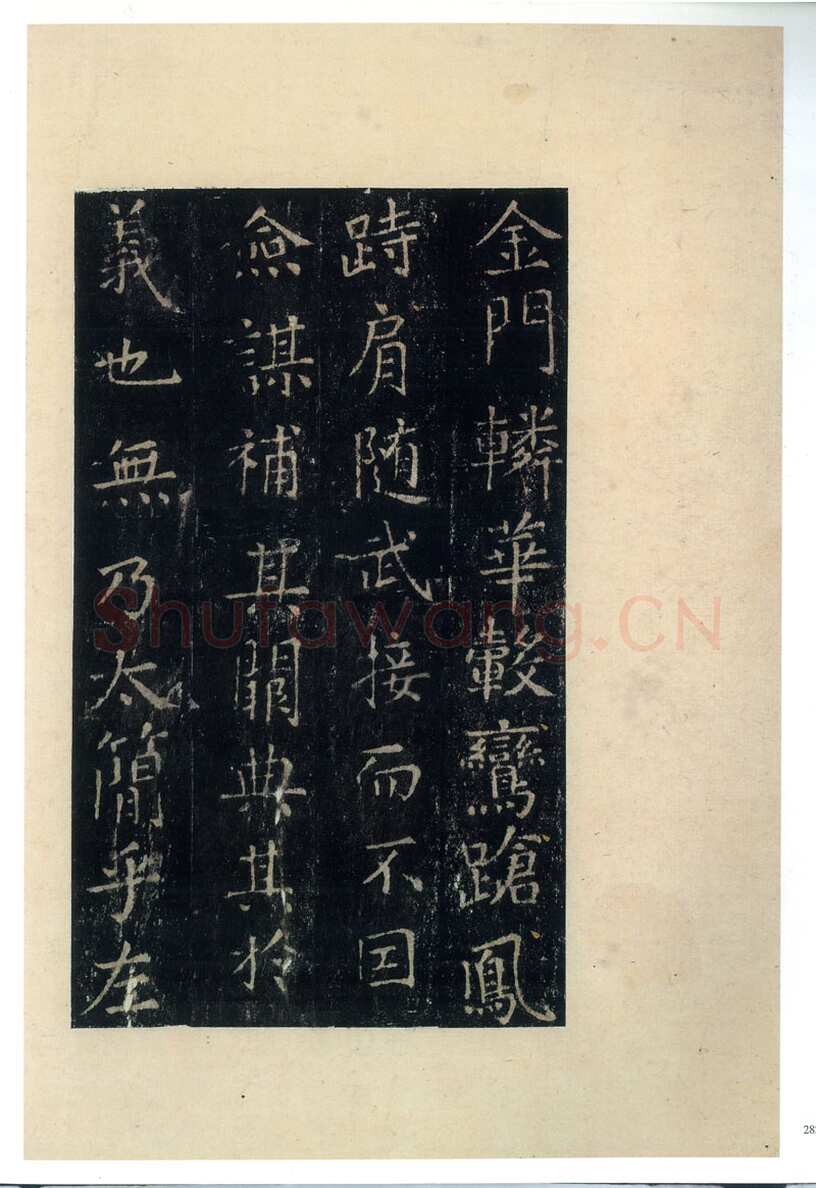 金門轔華轂鸞蹌鳳
跱肩随武接而不囯
僉謀補其闕典其扵
義也無乃太簡乎左
Shufawang.CN